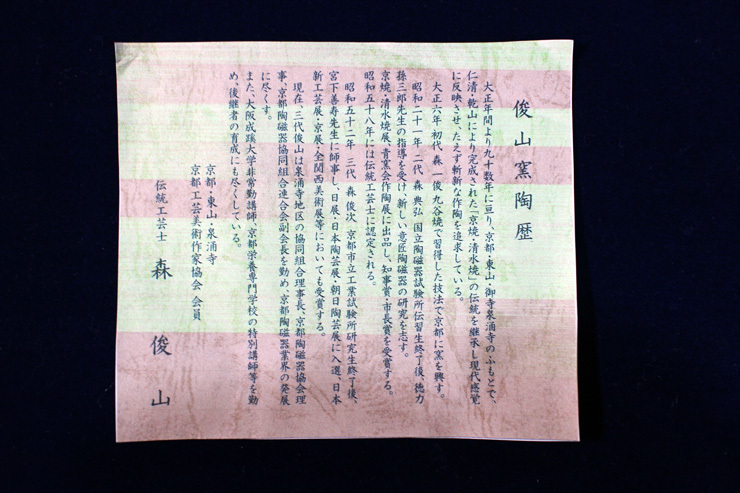 俊山窯陶歴
大正年間より九十数年に亘り、京都・東山・御寺泉涌寺のふもとで、
仁清・乾山により完成された「京焼・清水焼」の伝統を継承し現代感覚
に反映させ、たえず斬新な作陶を追求している。
大正六年 初代 森 一俊 九谷焼で習得した技法で京都に窯を興す。
昭和二十一年 二代 森 典弘 国立陶磁器試験所伝習生終了後、徳力
孫三郎先生の指導を受け、新しい意匠陶磁器の研究を志す。
京焼、清水焼展、青窯会作陶展に出品し、知事賞・市長賞を受賞する。
昭和五十八年には伝統工芸士に認定される。
昭和五十二年 三代 森 俊次 京都市立工業試験所研究生終了後、
宮下善寿先生に師事し、日展・日本陶芸展・朝日陶芸展に入選、日本
新工芸展・京展・全関西美術展等においても受賞する。
現在、三代俊山は泉涌寺地区の協同組合理事長、京都陶磁器協会理
事、京都陶磁器協同組合連合会副会長を勤め、京都陶磁器業界の発展
に尽くす。
また、大阪成蹊大学非常勤講師、京都栄養専門学校の特別講師等を勤
め、後継者の育成にも尽くしている。
京都・東山・泉涌寺
京都工芸美術作家協会 会員
伝統工芸士 森 俊 山